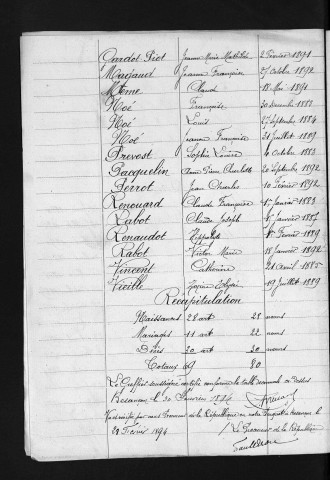 Cardot Piot Jeanne Marie Mathilde 2 Février 1891
Marjaud Jeanne Françoise 27 Octobre 1892
Claude 18 Mai 1891
Noé Françoise 30 Décembre 1883
Noé Louis 27 Septembre 1884
Noé Jeanne Françoise 31 Juillet 1889
Prevost Sophie Louise Octobre 1883
Pacquelin Charlotte 20 Septembre 1892
Perrot Jean Charles 10 Février 1892
Renouard Claude Françoise Janvier 1883
Rabot Claude Joseph Janvier 1887
Renaudot Hippolyte Février 1889
Rabot Victor Marie 18 Janvier 1892
Vincent Catherine 21 Avril 1885
Vieille 19 Juillet 1889
Récapitulation
Naissances 28 art 28 noms
Mariages 11 art 22 noms
Décès 20 art 20 noms
Totaux 70
Le Greffier soussigné certifie conforme la table décennale ci-dessus
Besançon, le 30 Janvier 1894
par nous Procureur de la République
Février 1894
Le Procureur de la République